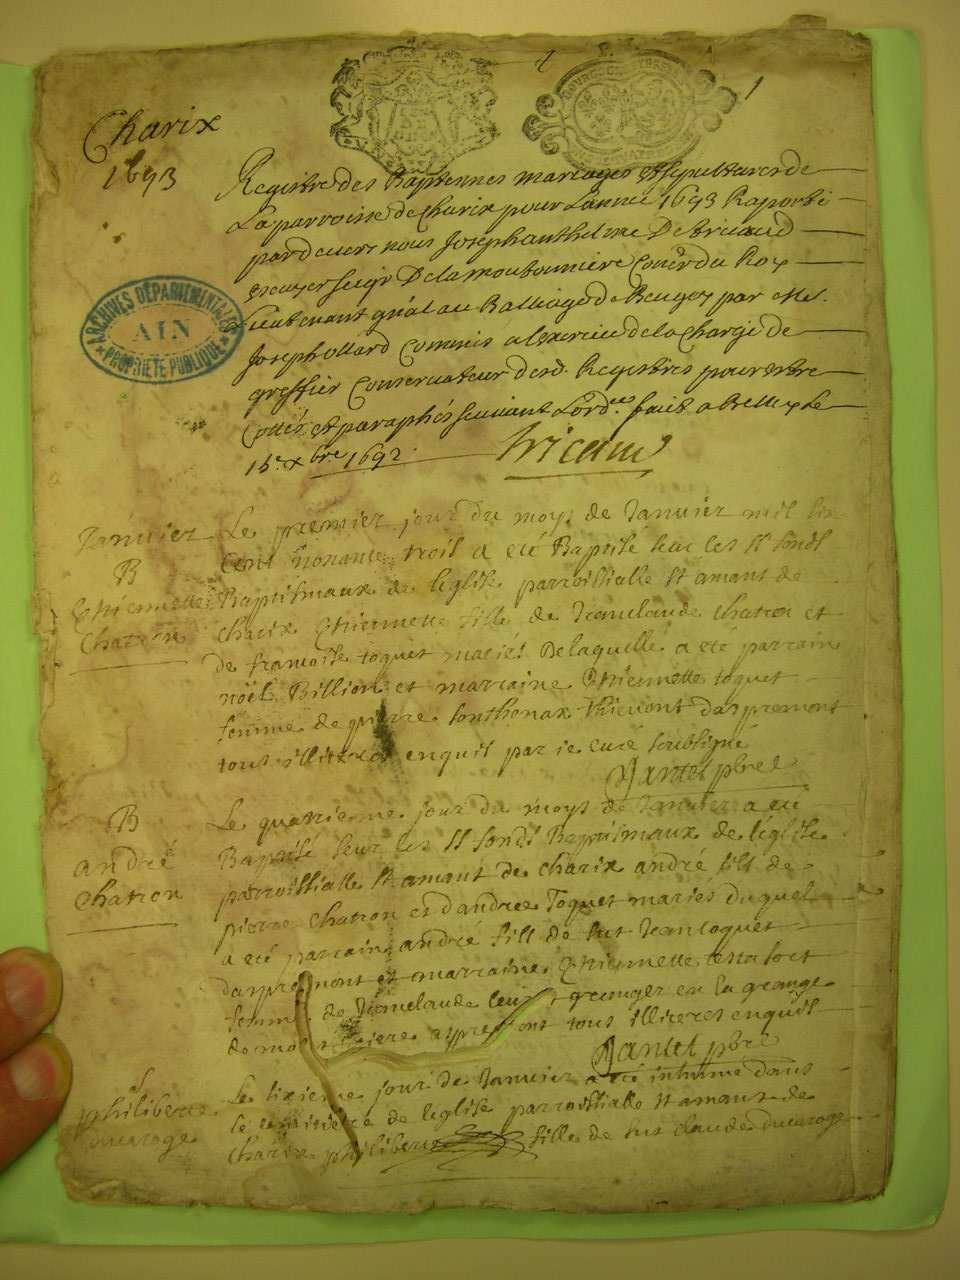 1
Charix
1693
Registre des Baptesmes mariages et sepultures de
La parroisse de Charix pour Lannee 1693 Raporté
pardevers nous Joseph anthelme De bricaud
escuyer seigr Delamoubonniere Coner du Roy
Lieutenant gnal au Balliage de Beugey par Me
Joseph ollard Commis a lexercice de la Charge de
greffier Conservateur desd. Registres pour estre
Cottés et paraphés suivant Lord.ce fait a belley le
15e xbre 1692
Bricaud
ARCHIVES DÉPARTEMENTALES
AIN
PROPRIÉTÉ PUBLIQUE
Janvier
B
Ethiennette
Chatron
Le premier jour du moys de Janvier mil six
cent nonante trois a eté Baptisé sur les Sts fonds
Baptismaux de leglise parroissialle St amant de
Charix Ethiennette fille de Jeanclaude Chatron et
de francoise toquet mariés De laquelle a eté parrain
noël Billion et marraine Ethiennette toquet
femme de pierre sonthonax dapremont
tous illiteres enquis par je curé soubsigné
Jantet pbre
B
andré
Chatron
Le quatrieme jour du moys de Janvier a eté
Baptisé sur les Sts fonds Baptismaux de leglise
parroissialle St amant de Charix andré fils de
pierre Chatron et dandree Toquet mariés duquel
a eté parrain andré fils de fut Jean toquet
dapremont et marraine Ethiennette
femme de Jeanclaude granger en la grange
de apremont tous illiteres enquis
Jantet pbre
philiberte
ducaroge
Le sixieme jour de Janvier a eté inhumé dans
le cimitiere de leglise parroissialle St amant de
Charix philiberte fille de fut claude ducaroge